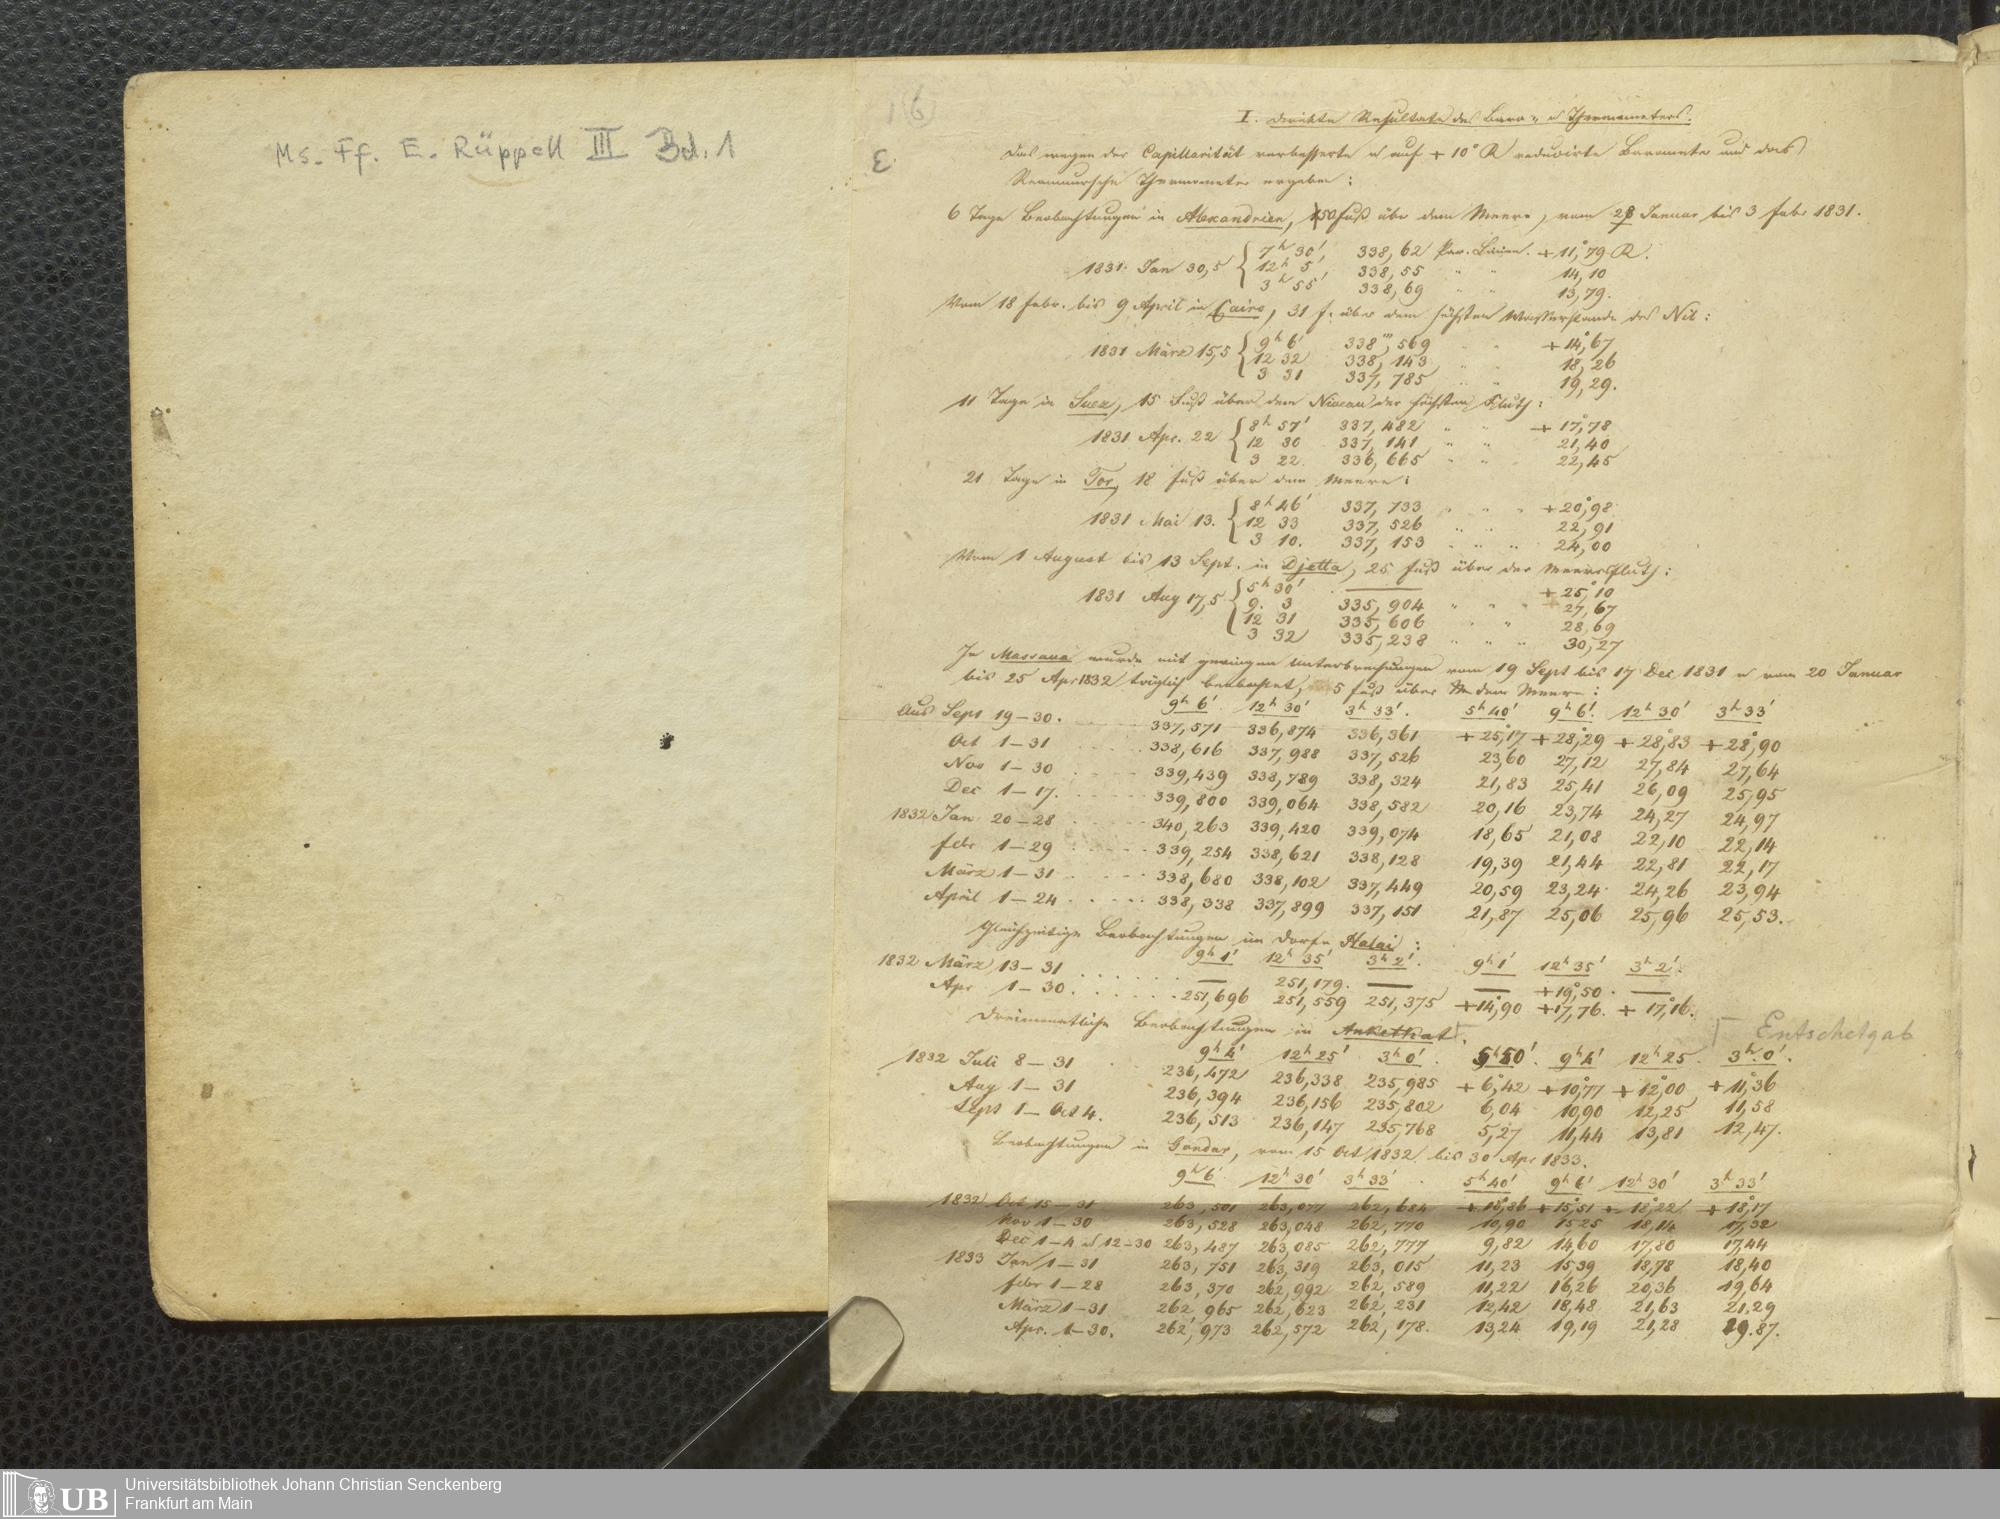 Ms. Ff. E. Rüppell III Bd. 1
1(6)
E
I. Direkte Resultate des Baro- u Thermometers.
Das wegen der Capillarität verbesserte u auf + 10° R reducirte Barometer und das
Reaumursche Thermometer ergeben:
6 Tage Beobachtungen in Alexandrien, 50 Fuß über dem Meere, vom 28 Januar bis 3 Febr 1831.
1831. Jan 30,5 { 7h 30', 338,62 Par. Linien. + 11,°79 R.
12h 5' 338,55 " " 14,10
3h 55' 338,69 " " 13,79.
Vom 18 Febr. bis 9 April in Cairo, 31 F. über dem höchsten Wasserstande des Nil:
1831 März 15,5 { 9h 6' 338''',569 " " + 14,°67
12 32 338,143 " " 18,26
3 31 337,785 " " 19,29.
11 Tage in Suez, 15 Fuß über dem Niveau der höchsten Fluth:
1831 Apr. 22 { 8h 57' 337,482 " " + 17,°78
12 30 337,141 " " 21,40
3 22. 336,665 " " 22,45
21 Tage in Tor, 18 Fuß über dem Meere:
1831 Mai 13. { 8h 46' 337,733 " " " + 20,°98
12 33 337,526 " " 22,91
3 10. 337,153 " " " 24,00
Vom 1 August bis 13 Sept. in Djetta, 25 Fuß über der Meeresfluth:
1831 Aug 17,5 { 5h 30' — + 25,°10
9. 3 335,904 " " " 27,67
12 31 335,606 " " 28,69
3 32 335,238 " " " 30,27
In Massaua wurde mit geringen Unterbrechungen vom 19 Sept bis 17 Dec 1831 u vom 20 Januar
bis 25 Apr 1832 täglich beobachtet, 5 Fuß über dem Meere:
9h 6'. 12h 30' 3h 33'. 5h 40' 9h 6'. 12h 30' 3h 33'
Aus Sept 19–30. 337,571 336,874 336,361 + 25,°17 + 28,°29 + 28,°83 + 28,°90
Oct 1–31 338,616 337,988 337,526 23,60 27,12 27,84 27,64
Nov 1–30 339,439 338,789 338,324 21,83 25,41 26,09 25,95
Dec 1–17. 339,800 339,064 338,582 20,16 23,74 24,27 24,97
1832 Jan 20–28 340,263 339,420 339,074 18,65 21,08 22,10 22,14
Febr 1–29 339,254 338,621 338,128 19,39 21,44 22,81 22,17
März 1–31 338,680 338,102 337,449 20,59 23,24 24,26 23,94
April 1–24 338,338 337,899 337,151 21,87 25,06 25,96 25,53.
Gleichzeitige Beobachtungen im Dorfe Halai:
9h 1' 12h 35' 3h 2'. 9h 1' 12h 35' 3h 2'.
1832 März 13–31 — 251,179. — — + 19,°50. —
Apr 1–30. 251,696 251,559 251,375 + 14,°90 + 17,76. + 17,°16.
Dreimonatliche Beobachtungen in Ankethat.
Entschetqab
9h 4' 12h 25' 3h 0'. 5h 50'. 9h 4' 12h 25. 3h 0'.
1832 Juli 8–31 236,472 236,338 235,985 + 6,°42 + 10,°77 + 12,°00 + 11,°36
Aug 1–31 236,394 236,156 235,802 6,04 10,90 12,25 11,58
Sept 1–Oct 4. 236,513 236,147 235,768 5,27 11,44 13,81 12,47.
Beobachtungen in Gondar, vom 15 Oct 1832 bis 30 Apr 1833.
9h 6' 12h 30' 3h 33' 5h 40' 9h 6' 12h 30' 3h 33'
1832 Oct 15–31 263,501 263,077 262,684 + 15,51 + 18,22 + 18,°17
Nov 1–30 263,528 263,048 262,770 10,90 15 25 18,14 17,32
Dec 1–4 u 12–30 263,487 263,085 262,777 9,82 14,60 17,80 17,44
1833 Jan 1–31 263,751 263,319 263,015 11,23 15,39 18,78 18,40
Febr 1–28 263,370 262,992 262,589 11,22 16,26 20,36 19,64
März 1–31 262,965 262,623 262,231 12,42 18,48 21,63 21,29
Apr. 1–30. 262,973 262,572 262,178. 13,24 19,19 21,28 19.87.
UB
Universitätsbibliothek Johann Christian Senckenberg
Frankfurt am Main